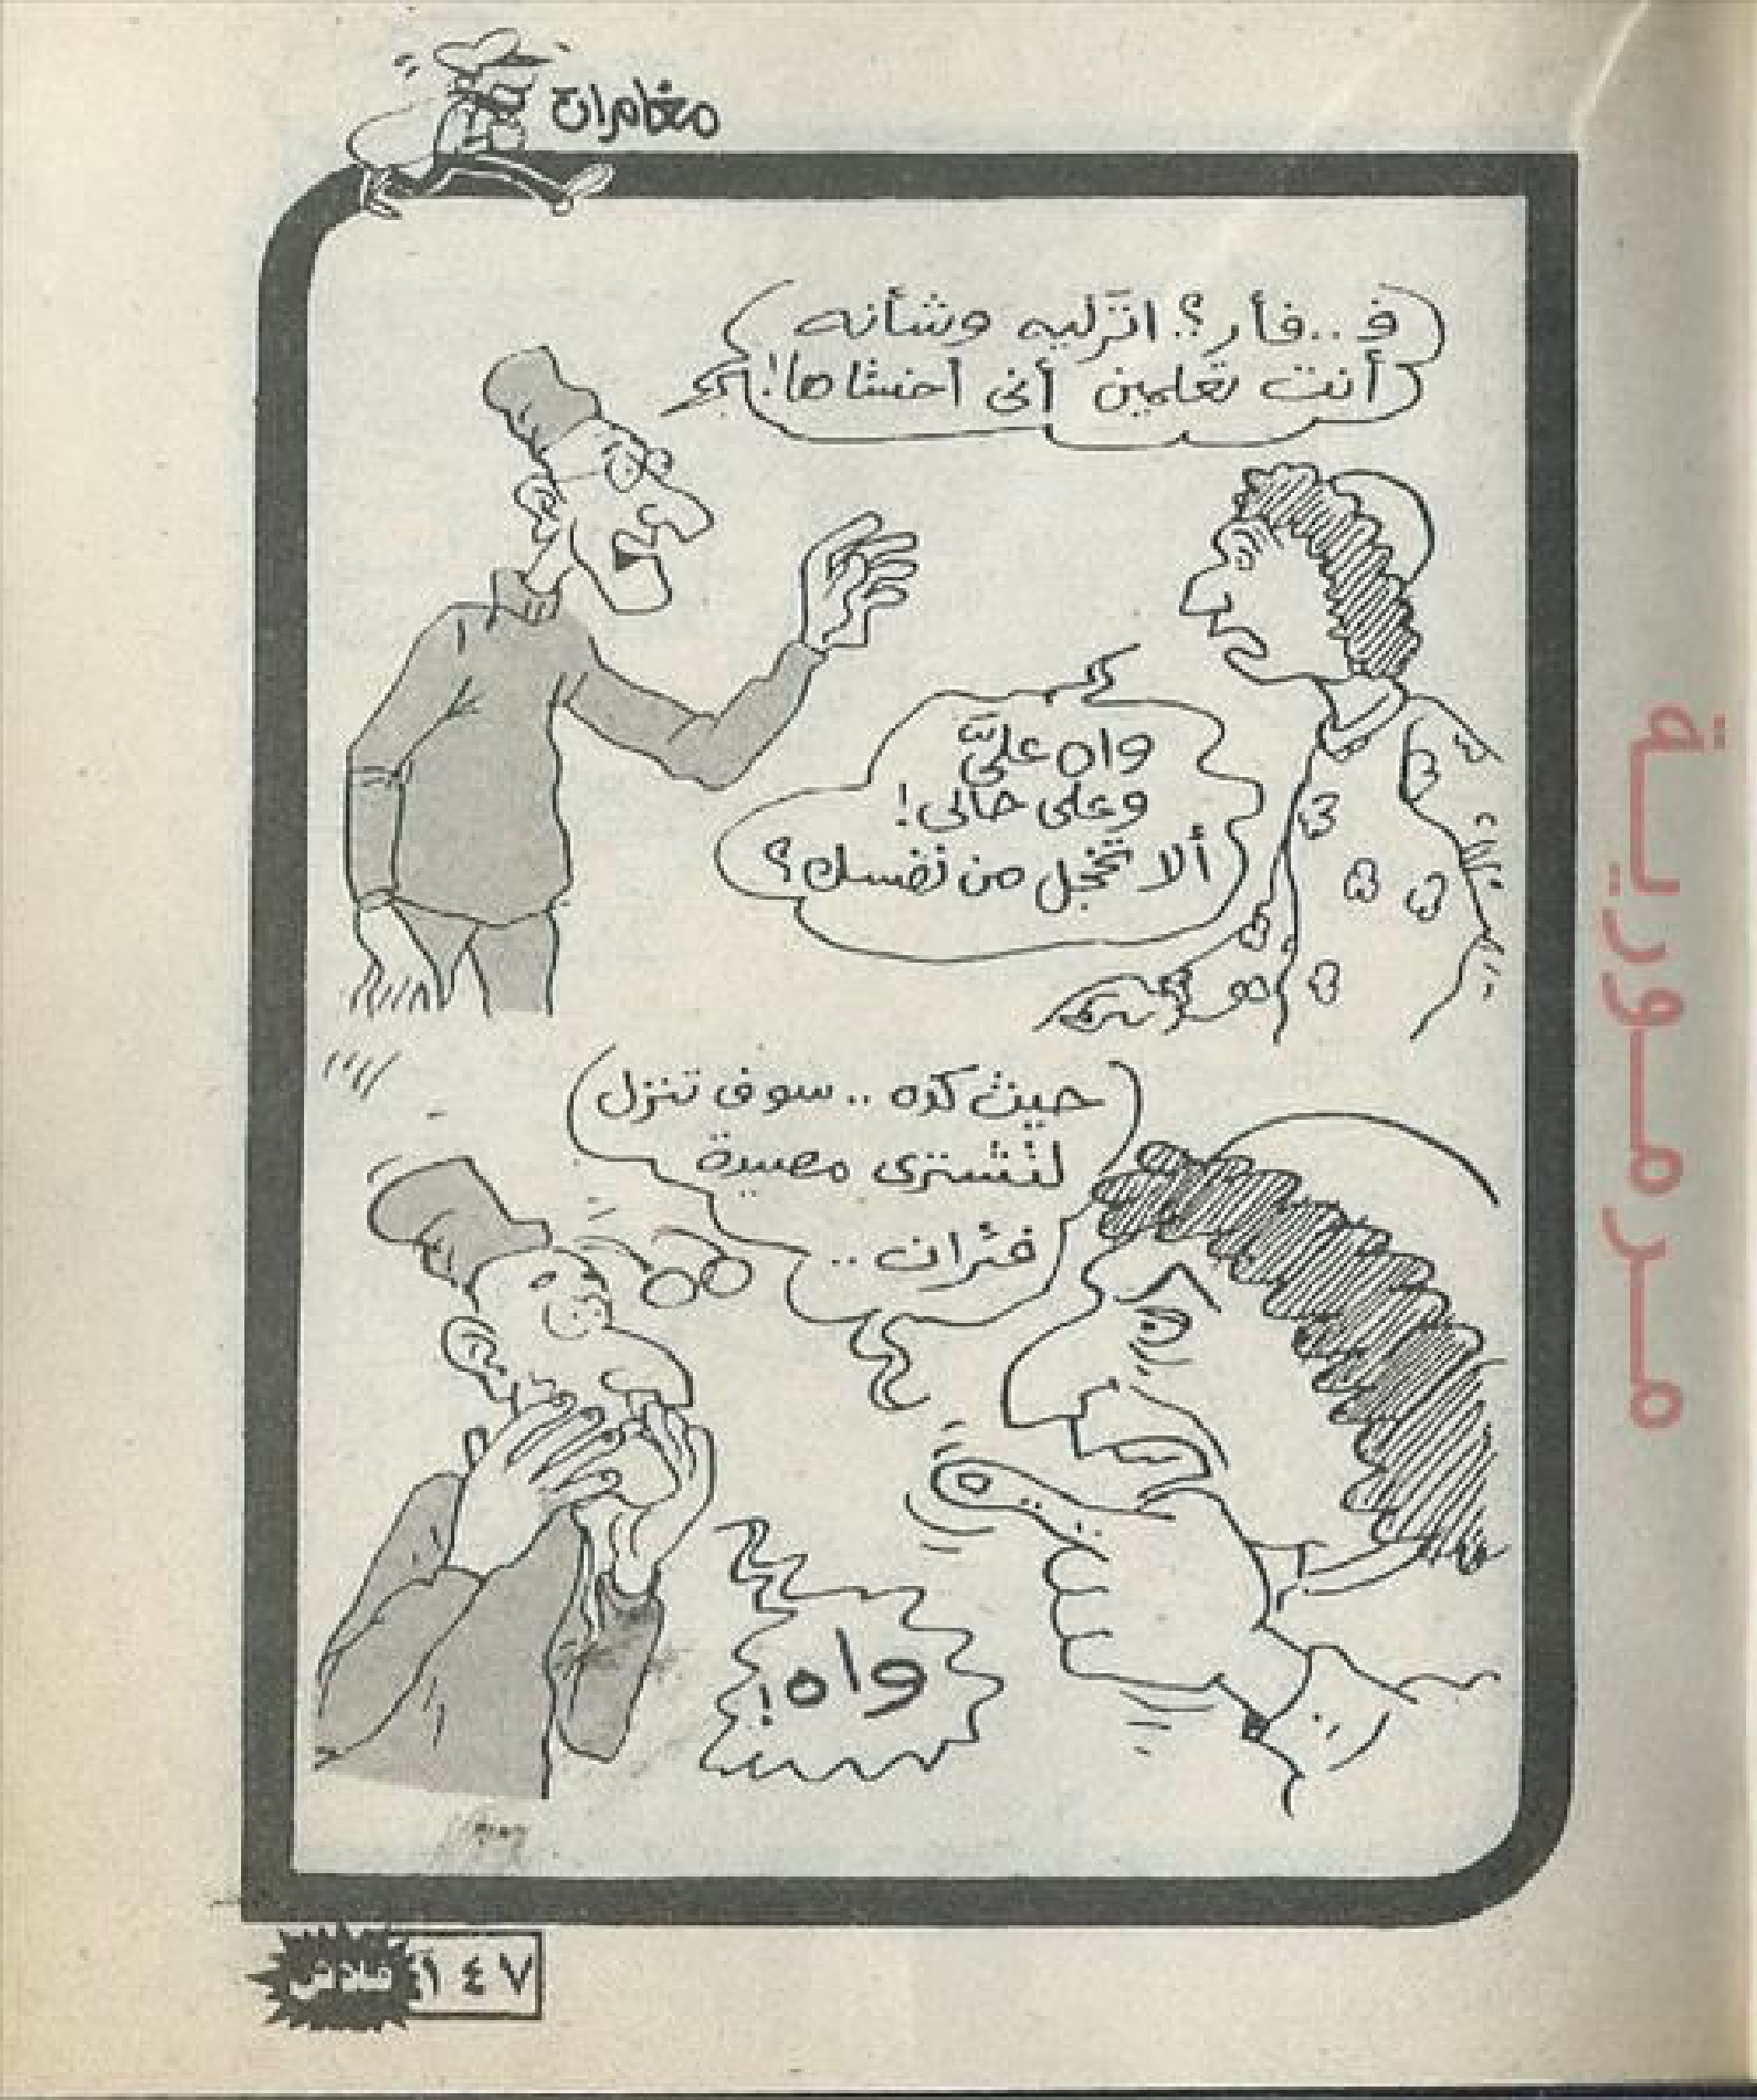 مغامرات
ف..فأر؟. اتركيه وشأنه
أنت تعلمين أنى أخشاها!
واه علىَّ
وعلى حالى!
ألا تخجل من نفسك؟
حيث كده .. سوف تنزل
لتشترى مصيدة
فئران ..
واه!
فلاش ١٤٧
مرمورية